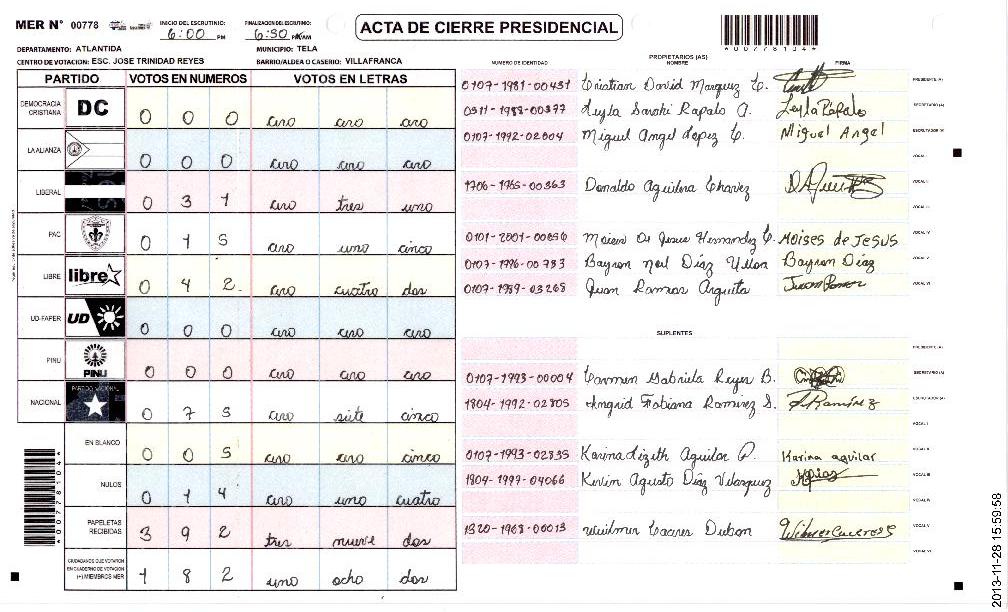 MER N° 00778 INICIO DEL ESCRUTINIO: 6:00 PM FINALIZACION DEL ESCRUTINIO: 6:30 PM/AM ACTA DE CIERRE PRESIDENCIAL
*00778104*
DEPARTAMENTO: ATLANTIDA MUNICIPIO: TELA
CENTRO DE VOTACION: ESC. JOSE TRINIDAD REYES BARRIO/ALDEA O CASERIO: VILLAFRANCA
PARTIDO VOTOS EN NUMEROS VOTOS EN LETRAS
DEMOCRACIA CRISTIANA DC 0 0 0 cero cero cero
LA ALIANZA 0 0 0 cero cero cero
LIBERAL 0 3 1 cero tres uno
PAC 0 1 5 cero uno cinco
LIBRE libre 0 4 2 cero cuatro dos
UD-FAPER UD 0 0 0 cero cero cero
PINU PINU 0 0 0 cero cero cero
NACIONAL PARTIDO NACIONAL 0 7 5 cero siete cinco
EN BLANCO 0 0 5 cero cero cinco
NULOS 0 1 4 cero uno cuatro
PAPELETAS RECIBIDAS 3 9 2 tres nueve dos
CIUDADANOS QUE VOTARON EN CUADERNO DE VOTACION (+) MIEMBROS MER 1 8 2 uno ocho dos
*00778104*
PROPIETARIOS (AS)
NUMERO DE IDENTIDAD NOMBRE FIRMA
0107-1981-00431 Cristian David Marquez C. PRESIDENTE (A)
0511-1988-00377 Leyla Sarahi Rapalo A. Leyla Rápalo SECRETARIO (A)
0107-1992-02004 Miguel Angel Lopez C. Miguel Angel ESCRUTADOR (A)
VOCAL I
1706-1965-00363 Donaldo Aguilera Chavez VOCAL II
VOCAL III
0101-2001-00856 Moises De Jesus Hernandez C. MOISES de JESUS VOCAL IV
0107-1996-00733 Bayron Díaz VOCAL V
0107-1989-03265 Juan Ramos Argueta Juan Ramos VOCAL VI
SUPLENTES
PRESIDENTE (A)
0107-1993-00004 Carmen Gabriela Reyes B. SECRETARIO (A)
1804-1992-02805 Ingrid Fabiana Ramirez S. Ramírez ESCRUTADOR (A)
VOCAL I
0107-1993-02835 Karina Lizeth Aguilar P. Karina aguilar VOCAL II
1804-1997-04066 Kevin Agusto Díaz Velasquez VOCAL III
VOCAL IV
1320-1968-00013 Wilmer Caceres Dubon VOCAL V
VOCAL VI
2013-11-28 15:59:58